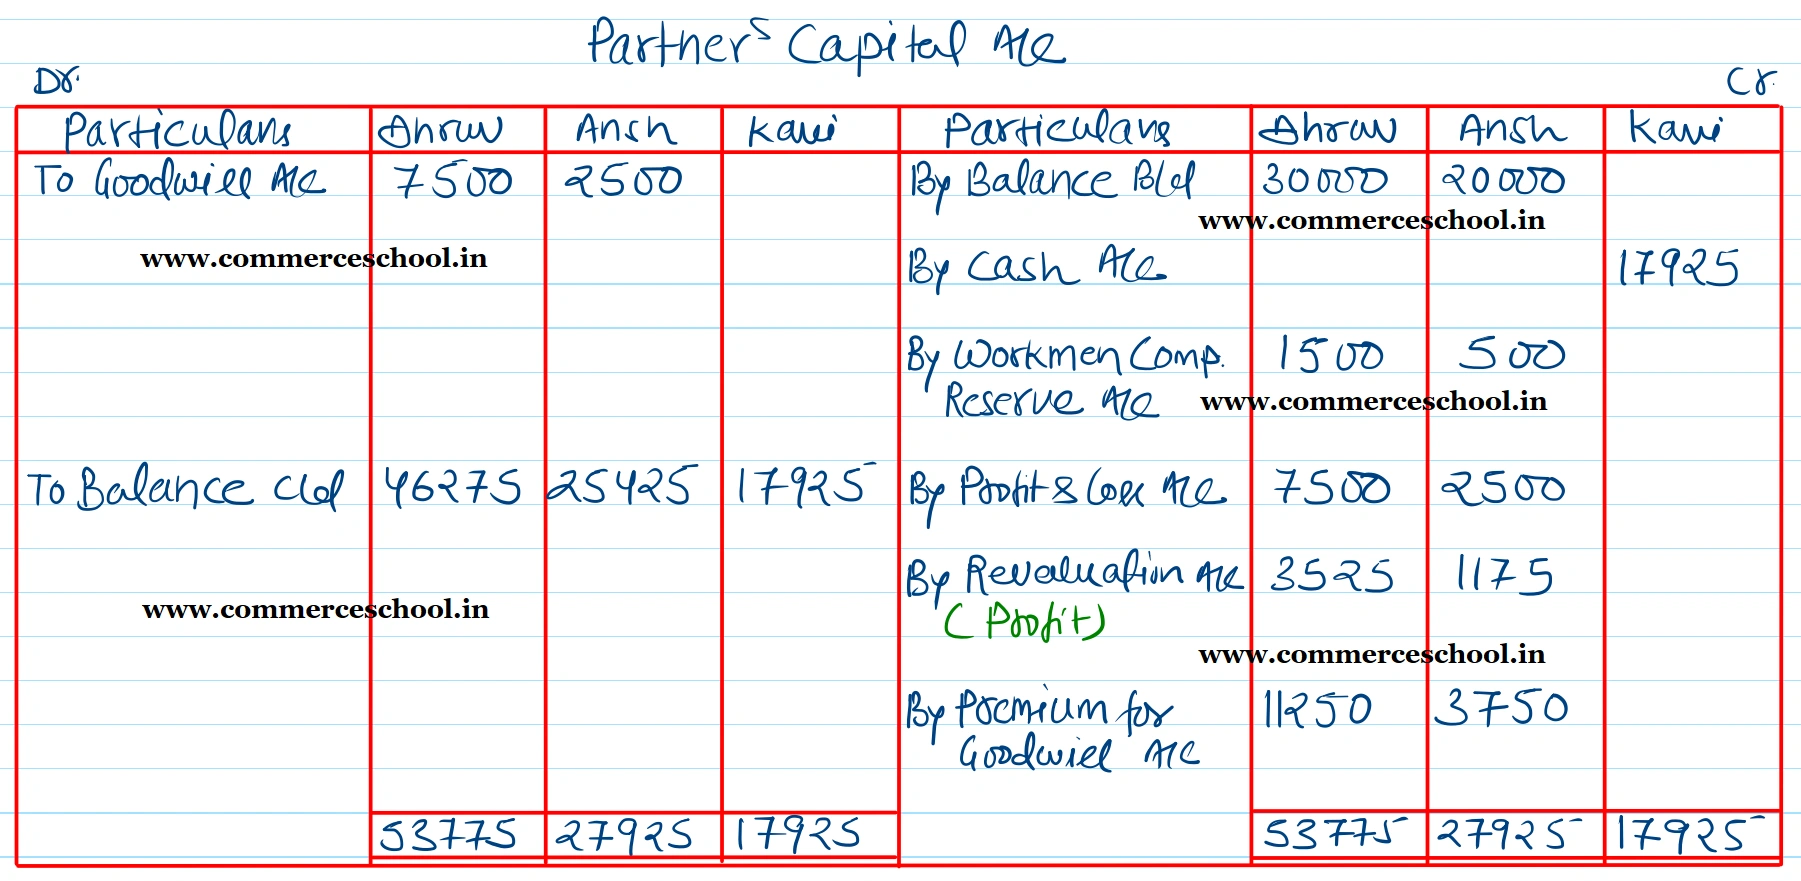 Partner's Capital A/c
Dr. Cr.
Particulars Dhruv Ansh Kavi Particulars Dhruv Ansh Kavi
To Goodwill A/c 7500 2500 By Balance B/d 30000 20000
www.commerceschool.in
www.commerceschool.in By Cash A/c 17925
By Workmen Comp. 1500 500
Reserve A/c www.commerceschool.in
To Balance c/d 46275 25425 17925 By Profit & Loss A/c 7500 2500
By Revaluation A/c 3525 1175
www.commerceschool.in (Profit)
www.commerceschool.in
By Premium for 11250 3750
Goodwill A/c
53775 27925 17925 53775 27925 17925